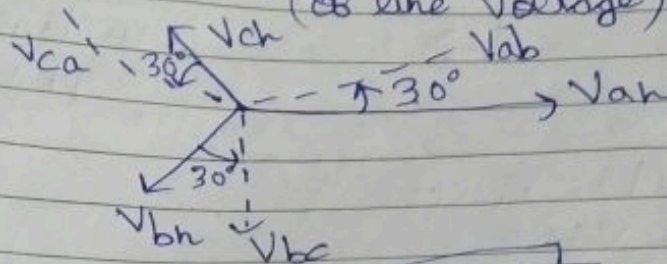 (of line Voltage)
Vca 30° Vcn
Vab
30° Van
30°
Vbn Vbc